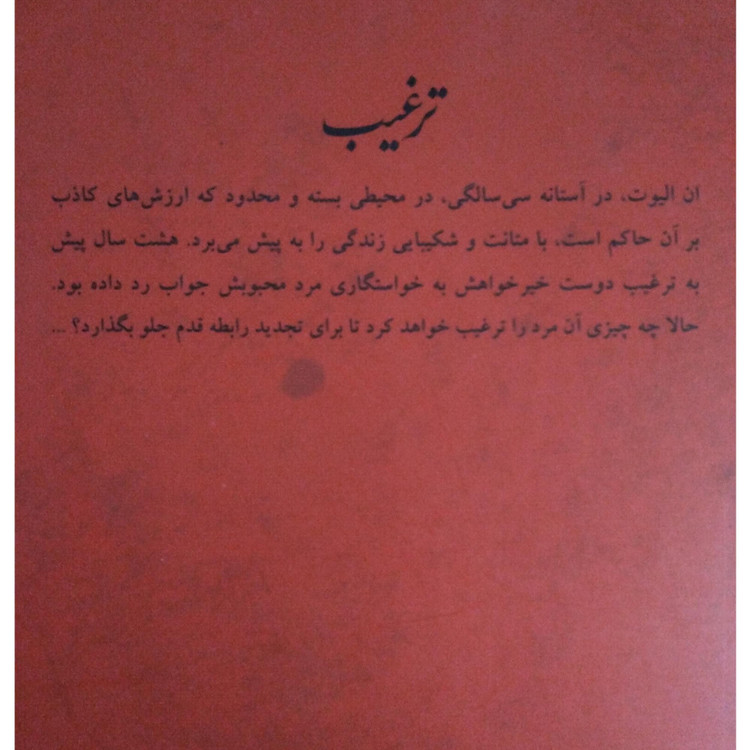 ترغیب
ان الیوت، در آستانه سی‌سالگی، در محیطی بسته و محدود که ارزش‌های کاذب
بر آن حاکم است، با متانت و شکیبایی زندگی را به پیش می‌برد. هشت سال پیش
به ترغیب دوست خیرخواهش به خواستگاری مرد محبوبش جواب رد داده بود.
حالا چه چیزی آن مرد را ترغیب خواهد کرد تا برای تجدید رابطه قدم جلو بگذارد؟ ...